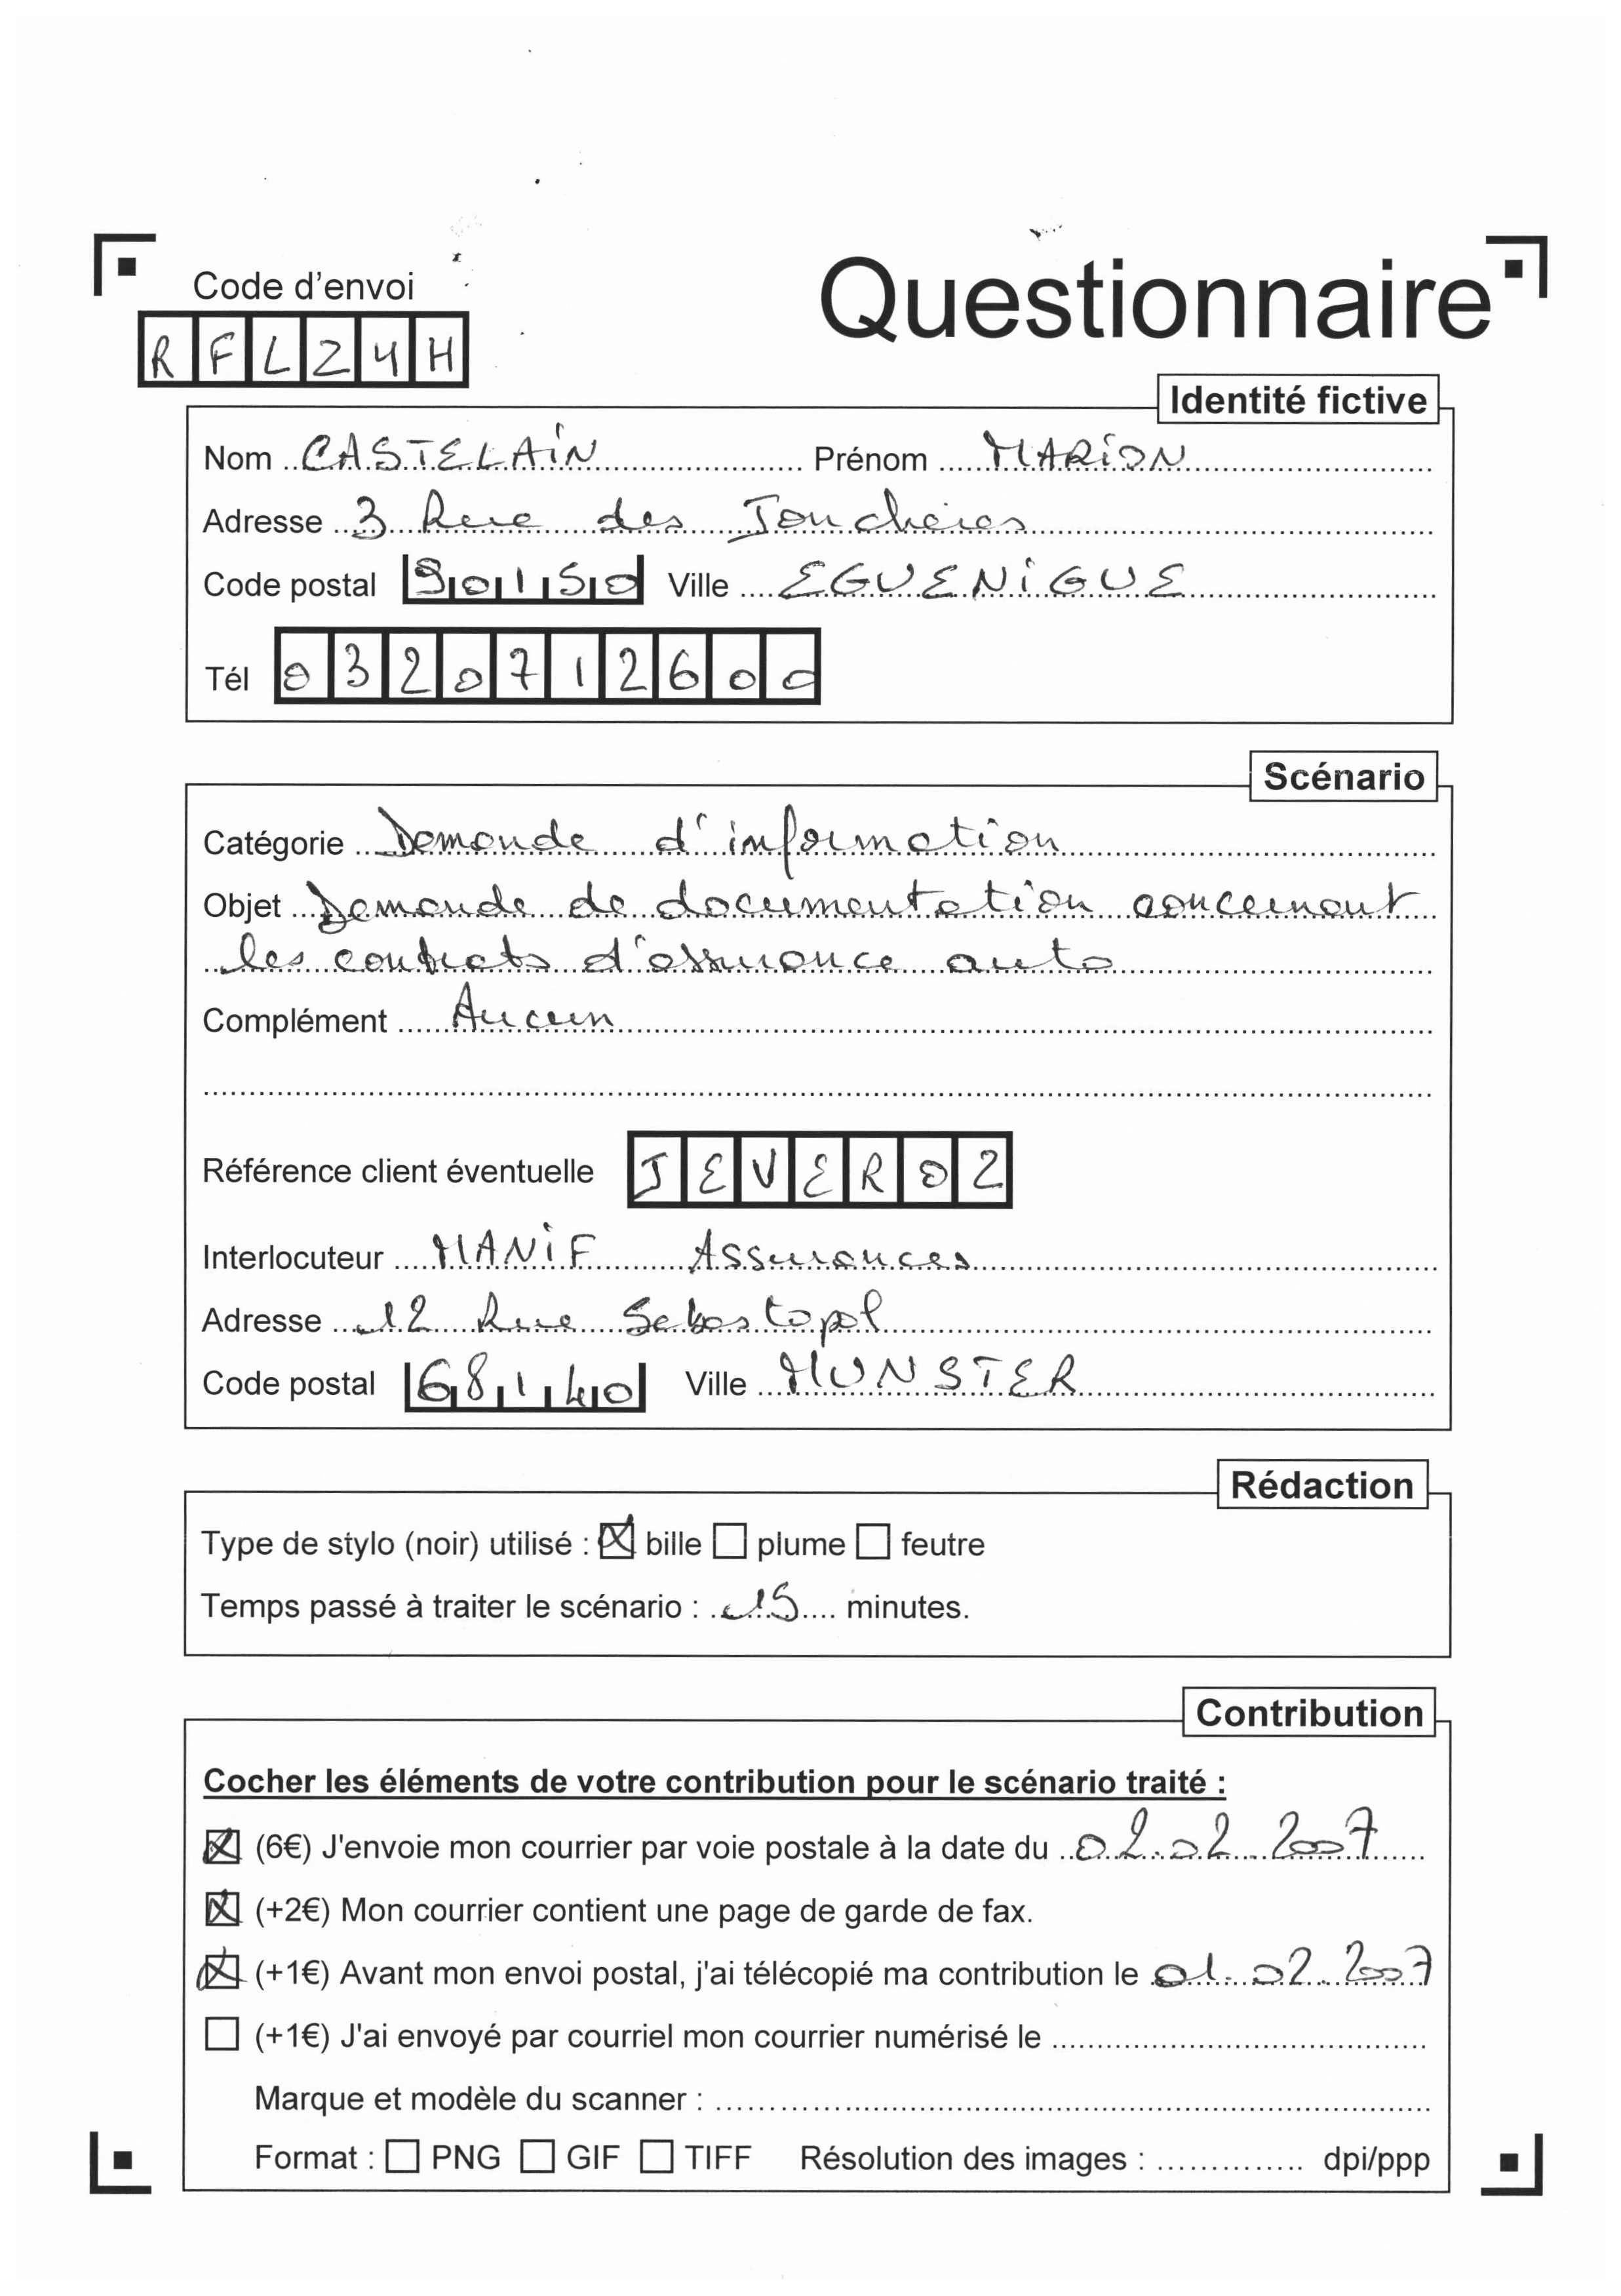 Code d'envoi
Questionnaire
RFLZ4H
Identité fictive
Nom CASTELAIN Prénom MARION
Adresse 3 Rue des Joncheres
Code postal 90150 Ville EGUENIGUE
Tél 0320712600
Scénario
Catégorie Demande d'information
Objet Demande de documentation concernant
les contrats d'assurance auto
Complément Aucun
Référence client éventuelle JEVER02
Interlocuteur MANIF Assurances
Adresse 12 Rue Sebastopol
Code postal 68140 Ville MUNSTER
Rédaction
Type de stylo (noir) utilisé : ☒ bille ☐ plume ☐ feutre
Temps passé à traiter le scénario : 15 minutes.
Contribution
Cocher les éléments de votre contribution pour le scénario traité :
☒ (6€) J'envoie mon courrier par voie postale à la date du 02.02.2007
☒ (+2€) Mon courrier contient une page de garde de fax.
☒ (+1€) Avant mon envoi postal, j'ai télécopié ma contribution le 01.02.2007
☐ (+1€) J'ai envoyé par courriel mon courrier numérisé le
Marque et modèle du scanner :
Format : ☐ PNG ☐ GIF ☐ TIFF Résolution des images : dpi/ppp